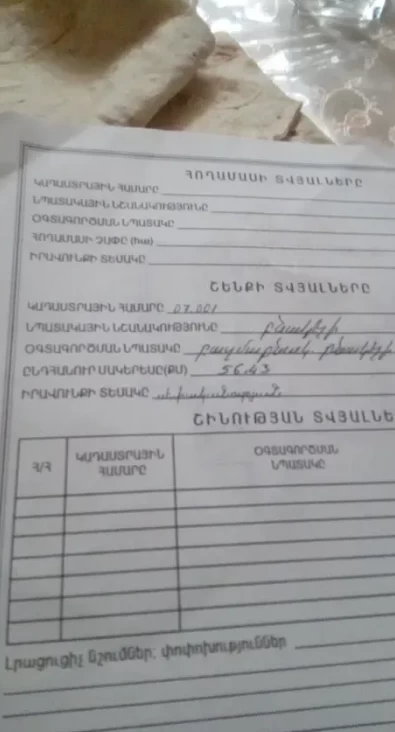 ՀՈՂԱՄԱՍԻ ՏՎՅԱԼՆԵՐԸ
ԿԱԴԱՍՏՐԱՅԻՆ ՀԱՄԱՐԸ
ՆՊԱՏԱԿԱՅԻՆ ՆՇԱՆԱԿՈՒԹՅՈՒՆԸ
ՕԳՏԱԳՈՐԾՄԱՆ ՆՊԱՏԱԿԸ
ՀՈՂԱՄԱՍԻ ՉԱՓԸ (հա)
ԻՐԱՎՈՒՆՔԻ ՏԵՍԱԿԸ
ՇԵՆՔԻ ՏՎՅԱԼՆԵՐԸ
ԿԱԴԱՍՏՐԱՅԻՆ ՀԱՄԱՐԸ 07.001
ՆՊԱՏԱԿԱՅԻՆ ՆՇԱՆԱԿՈՒԹՅՈՒՆԸ բնակելի
ՕԳՏԱԳՈՐԾՄԱՆ ՆՊԱՏԱԿԸ բազմաբնակ. բնակելի
ԸՆԴՀԱՆՈՒՐ ՄԱԿԵՐԵՍԸ(ՔՄ) 56.43
ԻՐԱՎՈՒՆՔԻ ՏԵՍԱԿԸ սեփականության
ՇԻՆՈՒԹՅԱՆ ՏՎՅԱԼՆԵ
Հ/Հ
ԿԱԴԱՍՏՐԱՅԻՆ
ՀԱՄԱՐԸ
ՕԳՏԱԳՈՐԾՄԱՆ
ՆՊԱՏԱԿԸ
Լրացուցիչ նշումներ, փոփոխություններ